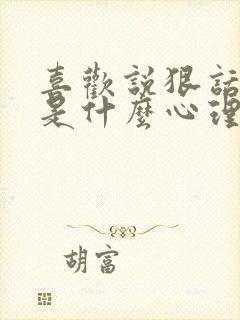 喜歡說狠話
是什麼心理
胡富